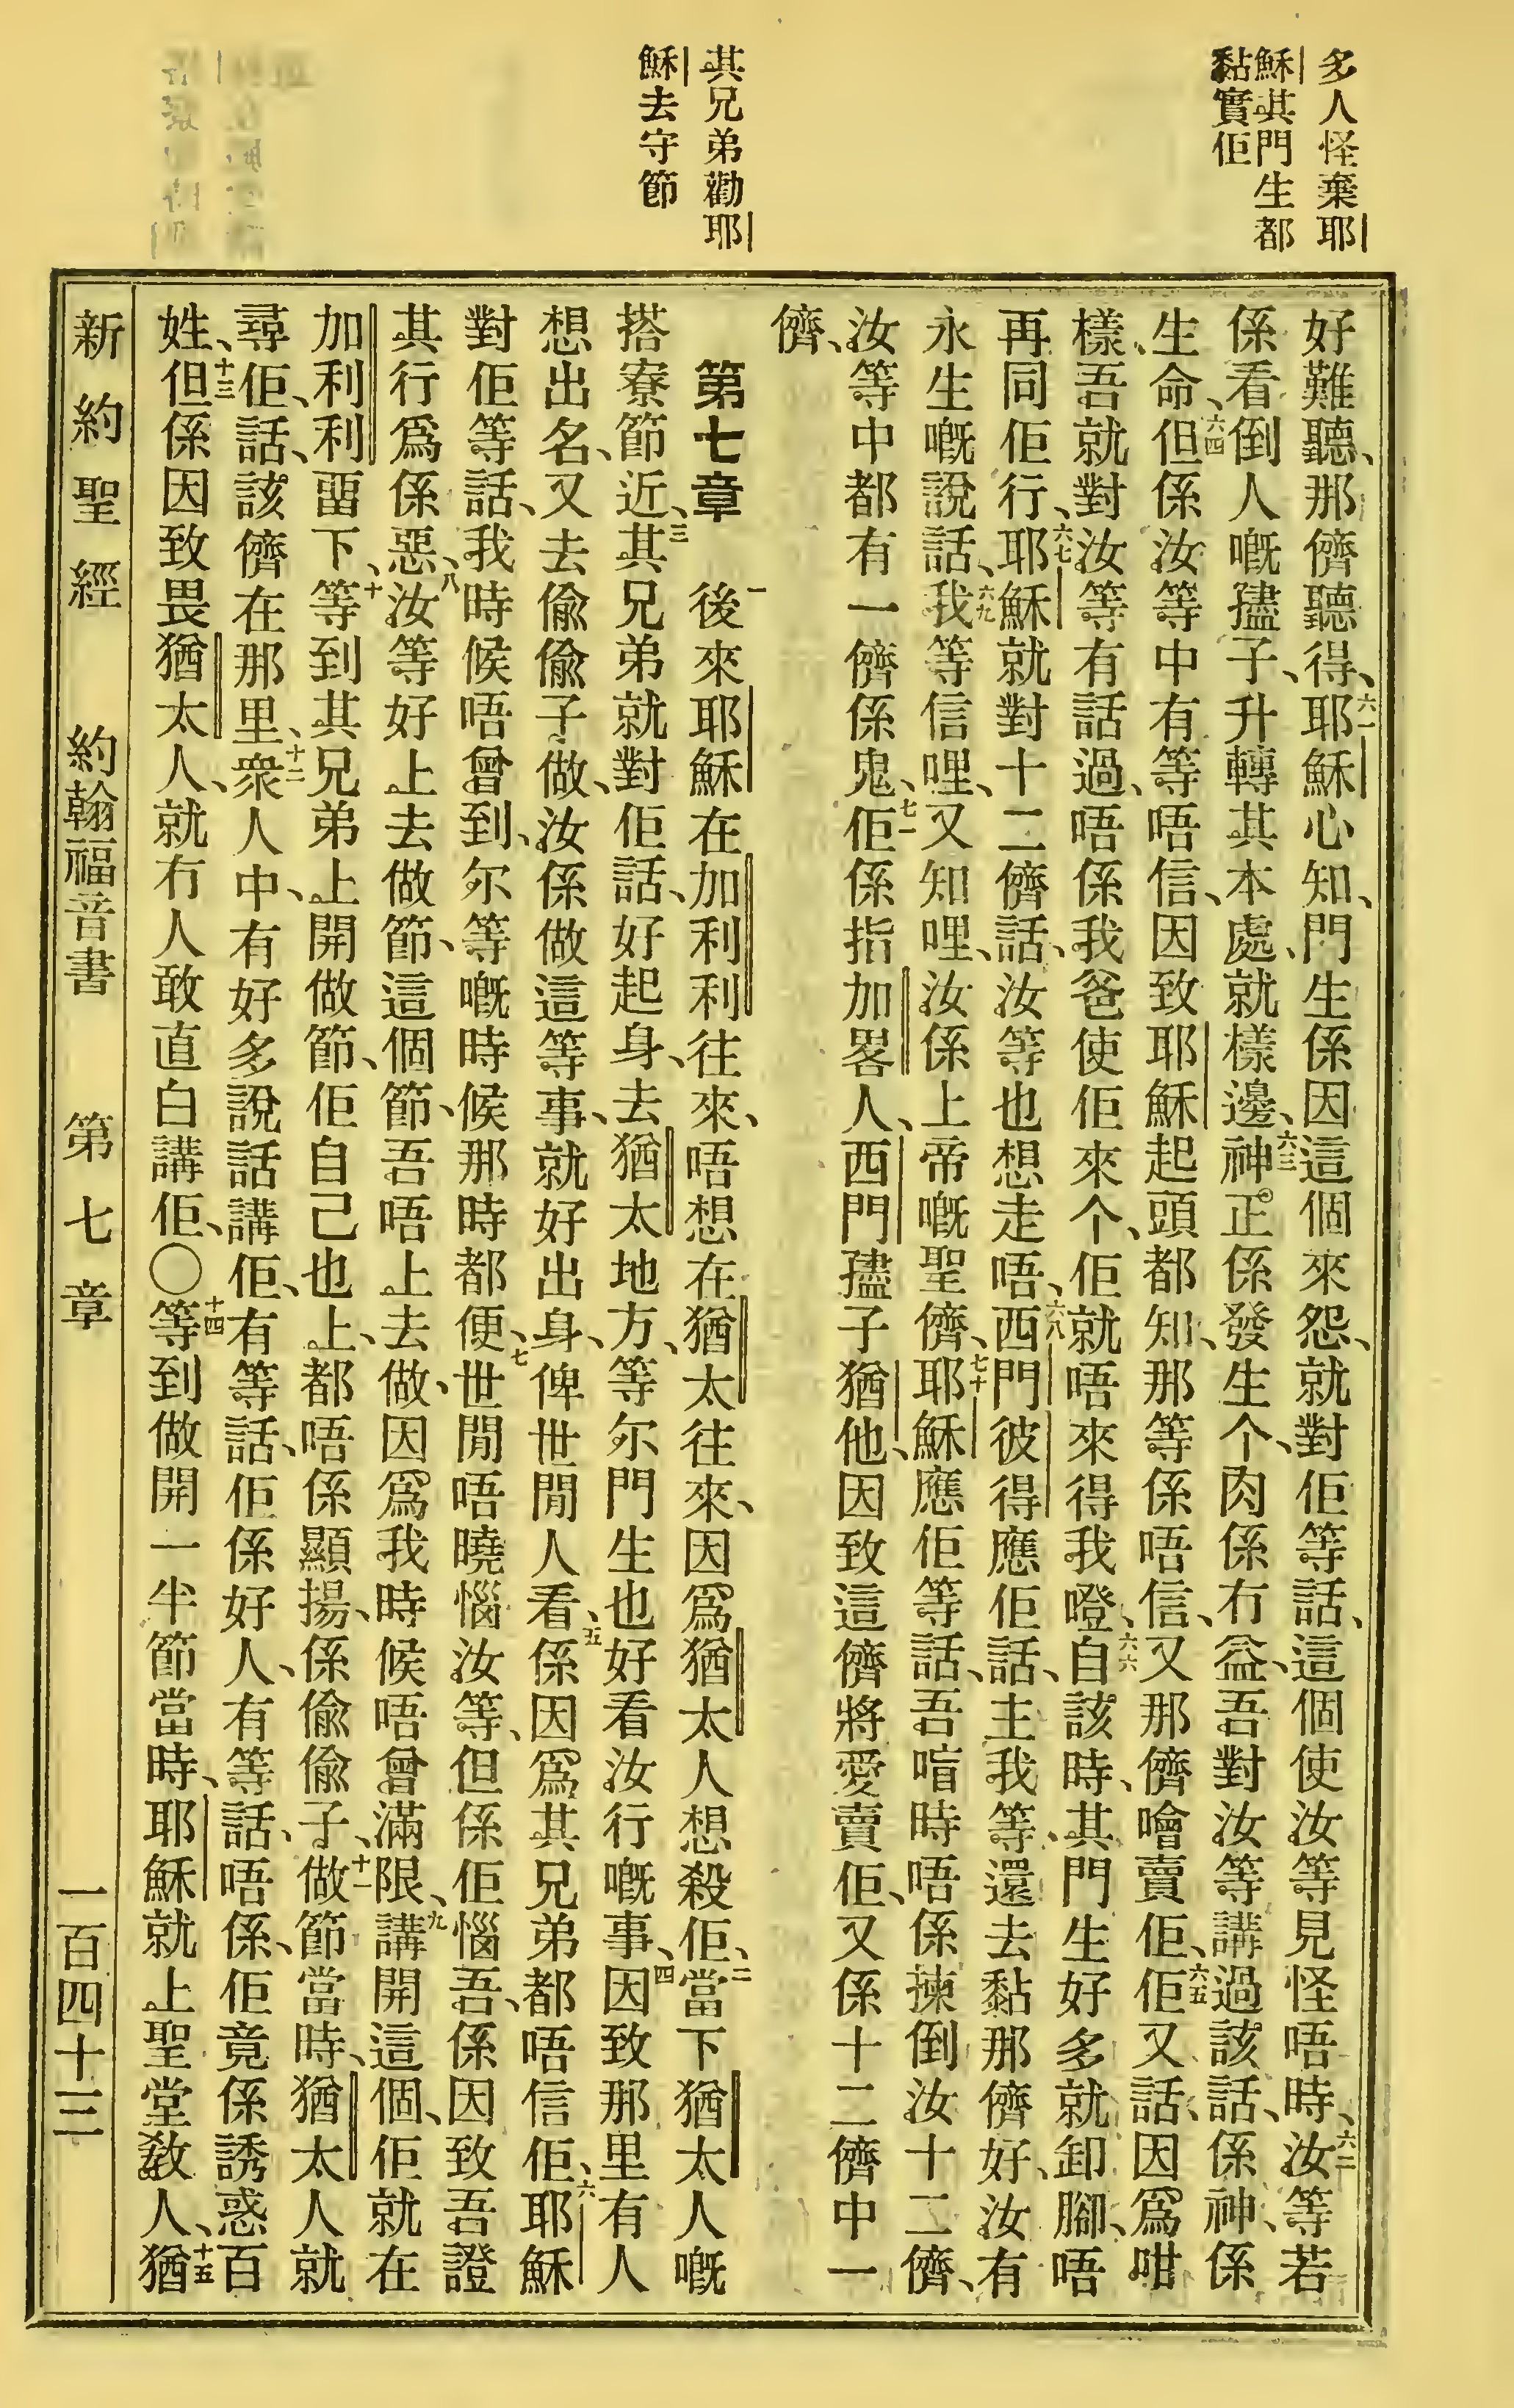 多人怪棄耶
穌其門生都
黏實佢
其兄弟勸耶
穌去守節
好難聽、那儕聽得、六一耶穌心知、門生係因這個來怨、就對佢等話、這個使汝等見怪唔時、六二汝等若
係看倒人嘅孻子、升轉其本處、就樣邊、六三神正係發生个、肉係冇益、吾對汝等講過該話、係神、係
生命、六四但係汝等中有等唔信、因致耶穌起頭都知、那等係唔信、又那儕噲賣佢、六五佢又話、因爲咁
樣、吾就對汝等有話過、唔係我爸使佢來个、佢就唔來得我嶝、六六自該時、其門生好多就卸腳、唔
再同佢行、六七耶穌就對十二儕話、汝等也想走唔、六八西門彼得應佢話、主我等、還去黏那儕好、汝有
永生嘅說話、六九我等信哩、又知哩、汝係上帝嘅聖儕、七十耶穌應佢等話、吾唷時唔係揀倒汝十二儕、
汝等中都有一儕係鬼、七一佢係指加畧人、西門孻子猶他、因致這儕將愛賣佢、又係十二儕中一
儕、
第七章　一後來耶穌在加利利往來、唔想在猶太往來、因爲猶太人想殺佢、二當下猶太人嘅
搭寮節近、三其兄弟就對佢話、好起身、去猶太地方、等尔門生也好看汝行嘅事、四因致那里有人
想出名、又去偸偸子做、汝係做這等事、就好出身、俾世閒人看、五係因爲其兄弟都唔信佢、六耶穌
對佢等話、我時候唔曾到、尔等嘅時候那時都便、七世閒唔曉惱汝等、但係佢惱吾、係因致吾證
其行爲係惡、八汝等好上去做節、這個節、吾唔上去做、因爲我時候唔曾滿限、九講開這個、佢就在
加利利畱下、十等到其兄弟上開做節、佢自己也上、都唔係顯揚、係偸偸子、十一做節當時、猶太人就
尋佢、話、該儕在那里、十二衆人中、有好多說話講佢、有等話、佢係好人、有等話、唔係、佢竟係誘惑百
姓、十三但係因致畏猶太人、就冇人敢直白講佢、〇十四等到做開一半節當時、耶穌就上聖堂敎人、十五猶
新約聖經　約翰福音書　第七章　一百四十三